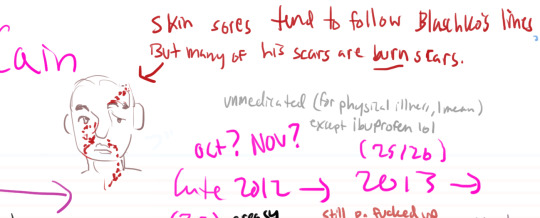 Skin sores tend to follow Blaschko's lines
But many of his scars are burn scars.
Cain
unmedicated (for physical illness, I mean)
except ibuprofen lol
oct? Nov?
(25/26)
Late 2012 → 2013 →
still
fucked up